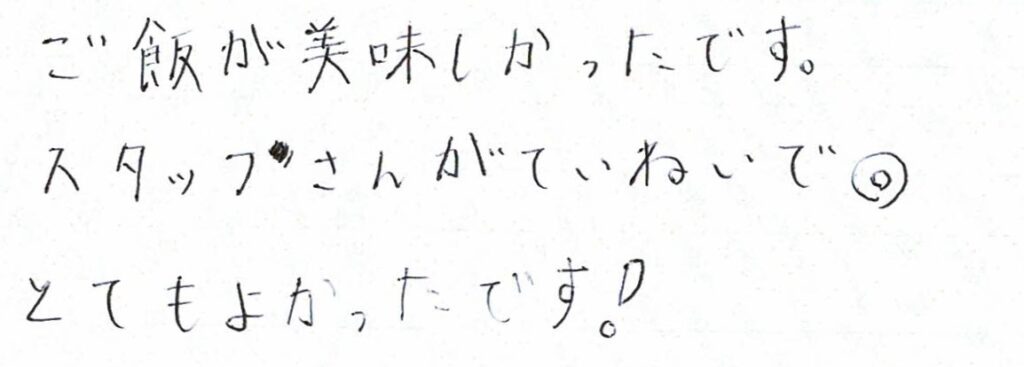 ご飯が美味しかったです。
スタッフさんがていねいで◎
とてもよかったです!